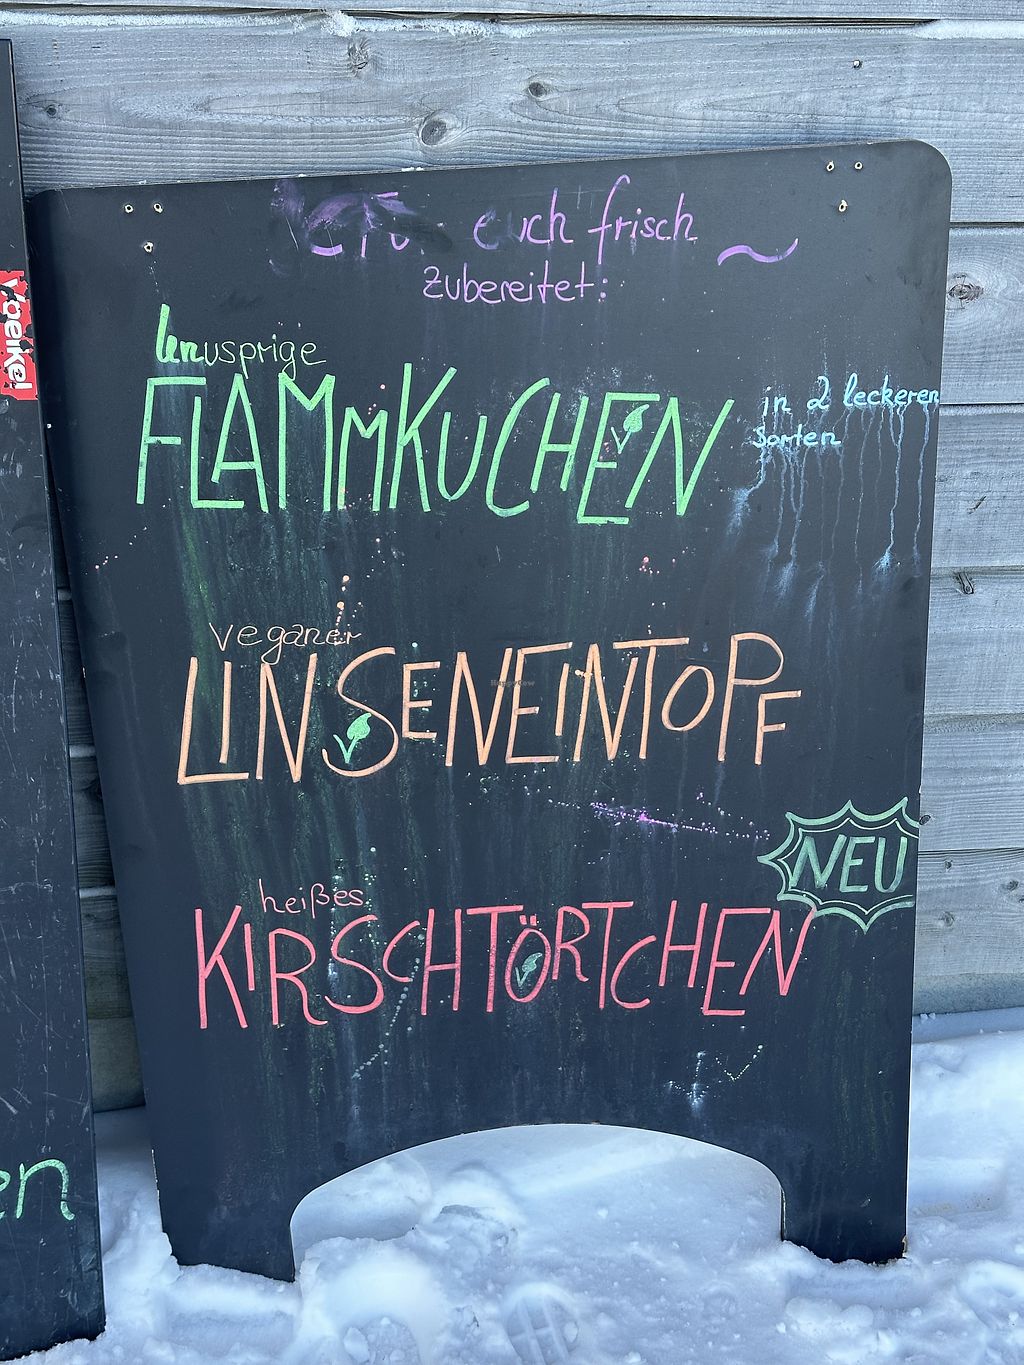 euch frisch
zubereitet:
usprige
FLAMMKUCHEN
in 2 leckeren
Sorten
veganer
LINSENEINTOPF
NEU
heißes
KIRSCHTÖRTCHEN
Voelkel
en